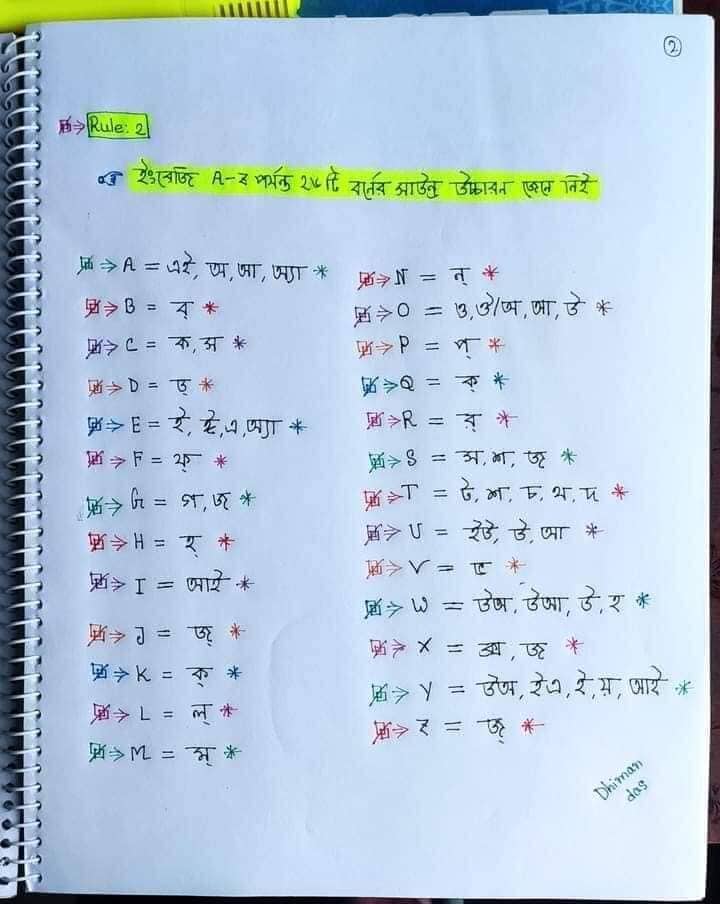 ②
Rule: 2
ইংরেজি A-Z পর্যন্ত ২৬ টি বর্নের সাউন্ড উচ্চারন জেনে নিই
A = এই, অ, আ, অ্যা *
B = ব্ *
C = ক, স *
D = ড্ *
E = ই, ঈ, এ, অ্যা *
F = ফ্ *
G = গ, জ *
H = হ্ *
I = আই *
J = জ্ *
K = ক্ *
L = ল্ *
M = ম্ *
N = ন্ *
O = ও, ঔ/অ, আ, উ *
P = প্ *
Q = ক্ *
R = র্ *
S = স, শ, জ *
T = ট, শ, চ, থ, দ *
U = ইউ, উ, আ *
V = ভ *
W = উঅ, উআ, উ, হ *
X = ক্স, জ *
Y = উঅ, ইএ, ই, য়, আই *
Z = জ্ *
Dhiman
das